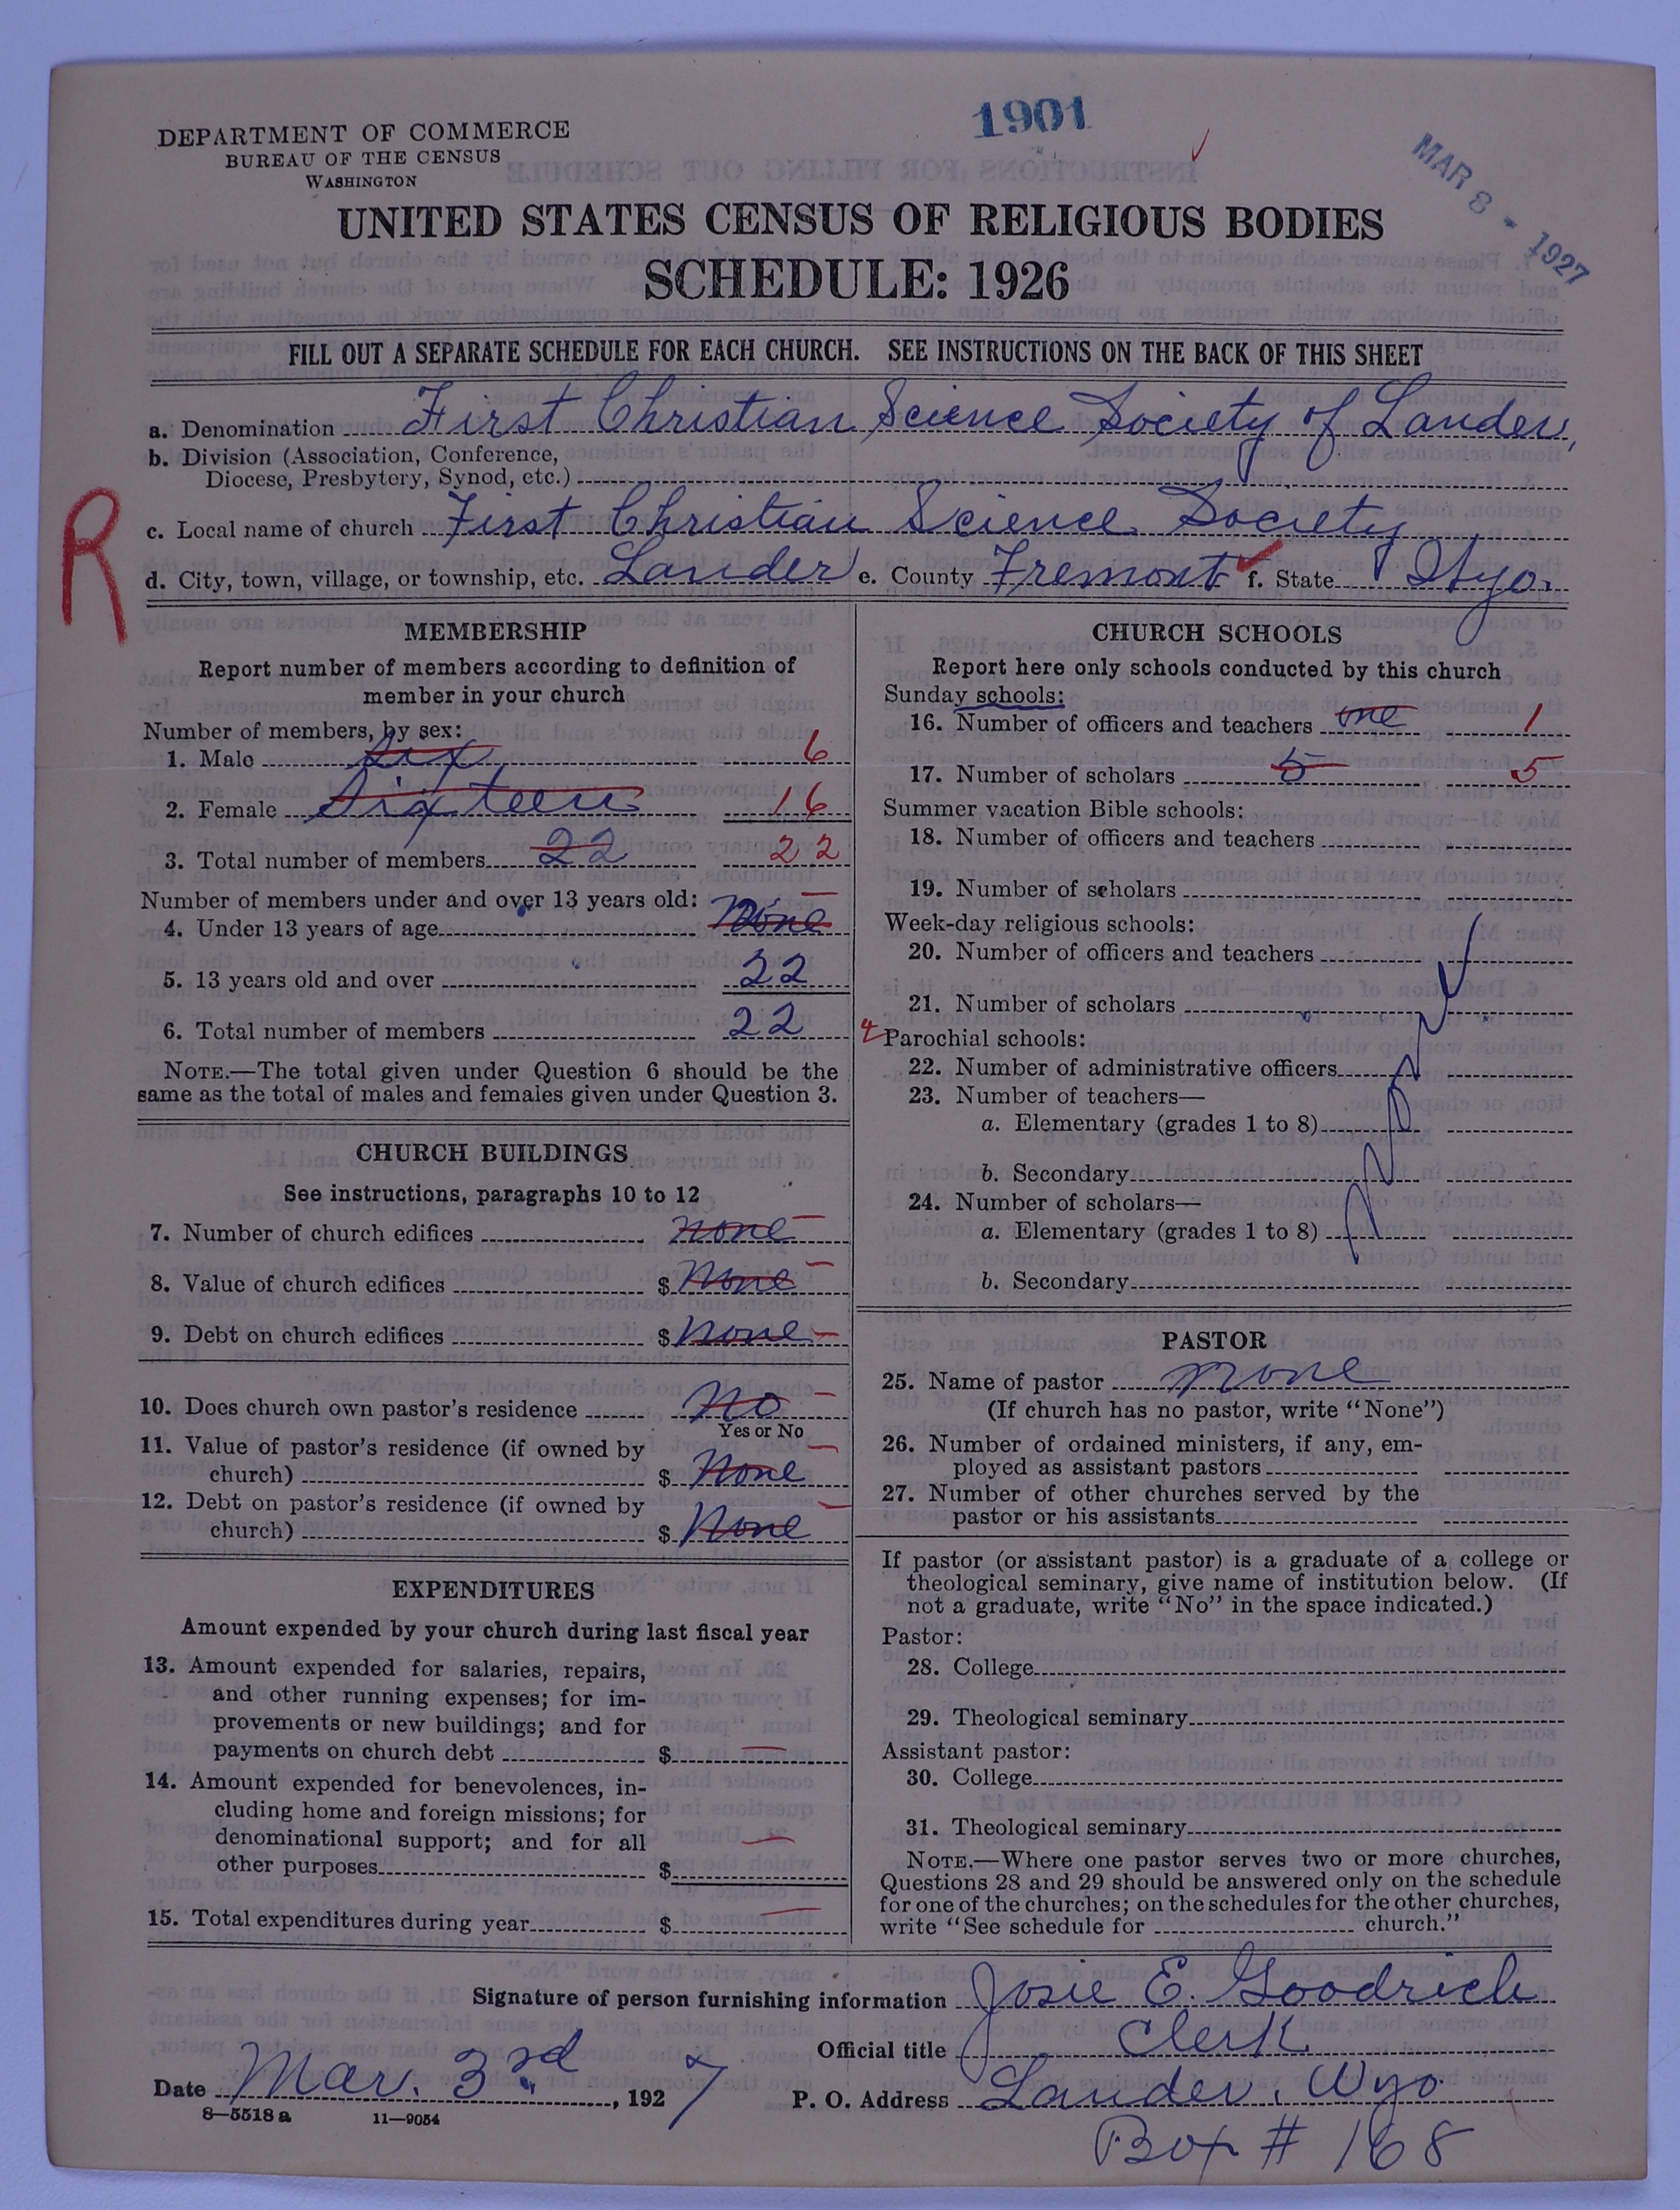 1901
MAR 8 - 1927
DEPARTMENT OF COMMERCE
BUREAU OF THE CENSUS
WASHINGTON
UNITED STATES CENSUS OF RELIGIOUS BODIES
SCHEDULE: 1926
FILL OUT A SEPARATE SCHEDULE FOR EACH CHURCH. SEE INSTRUCTIONS ON THE BACK OF THIS SHEET
a. Denomination First Christian Science Society of Lander,
b. Division (Association, Conference,
Diocese, Presbytery, Synod, etc.)
R
c. Local name of church First Christian Science Society
d. City, town, village, or township, etc. Lander e. County Fremont f. State Wyo.
MEMBERSHIP
Report number of members according to definition of
member in your church
Number of members, by sex:
1. Male six 6
2. Female Sixteen 16
3. Total number of members 22 22
Number of members under and over 13 years old:
4. Under 13 years of age None
5. 13 years old and over 22
6. Total number of members 22
NOTE.—The total given under Question 6 should be the
same as the total of males and females given under Question 3.
CHURCH BUILDINGS
See instructions, paragraphs 10 to 12
7. Number of church edifices none
8. Value of church edifices $ None
9. Debt on church edifices $ None
10. Does church own pastor's residence No
Yes or No
11. Value of pastor's residence (if owned by
church) $ None
12. Debt on pastor's residence (if owned by
church) $ None
EXPENDITURES
Amount expended by your church during last fiscal year
13. Amount expended for salaries, repairs,
and other running expenses; for im-
provements or new buildings; and for
payments on church debt $ —
14. Amount expended for benevolences, in-
cluding home and foreign missions; for
denominational support; and for all
other purposes $ —
15. Total expenditures during year $ —
CHURCH SCHOOLS
Report here only schools conducted by this church
Sunday schools:
16. Number of officers and teachers one 1
17. Number of scholars 5 5
Summer vacation Bible schools:
18. Number of officers and teachers
19. Number of scholars
Week-day religious schools:
20. Number of officers and teachers
21. Number of scholars
Parochial schools:
22. Number of administrative officers
23. Number of teachers—
a. Elementary (grades 1 to 8)
b. Secondary
24. Number of scholars—
a. Elementary (grades 1 to 8)
b. Secondary
PASTOR
25. Name of pastor none
(If church has no pastor, write "None")
26. Number of ordained ministers, if any, em-
ployed as assistant pastors
27. Number of other churches served by the
pastor or his assistants
If pastor (or assistant pastor) is a graduate of a college or
theological seminary, give name of institution below. (If
not a graduate, write "No" in the space indicated.)
Pastor:
28. College
29. Theological seminary
Assistant pastor:
30. College
31. Theological seminary
NOTE.—Where one pastor serves two or more churches,
Questions 28 and 29 should be answered only on the schedule
for one of the churches; on the schedules for the other churches,
write "See schedule for church."
Signature of person furnishing information Josie E. Goodrich
Official title Clerk
Date Mar. 3rd, 1927 P. O. Address Lander. Wyo
8—5518 a 11—9054
Box # 168